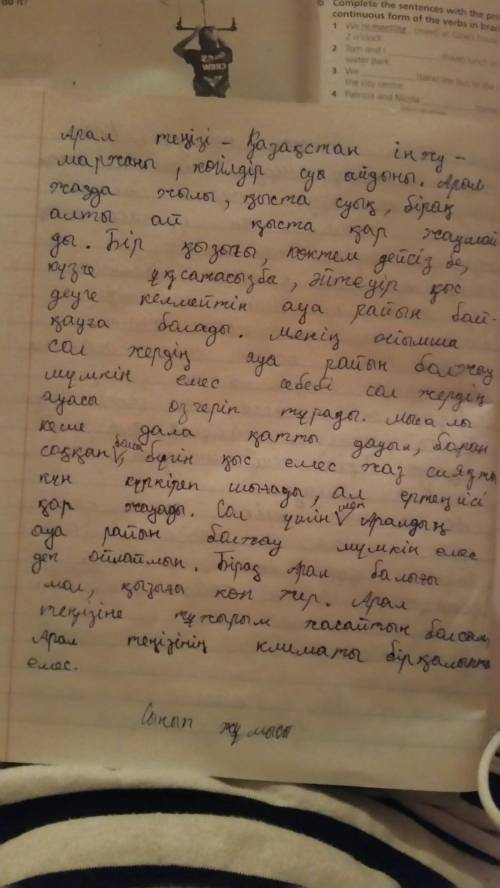 b Complete the sentences with the pre
continuous form of the verbs in brac
1 We're meeting (meet) at Gina's house
2 o'clock.
2 Tom and I (have) lunch
water park.
3 We (take) the bus to the
the city centre.
4 Patrick and Nicola
Арал теңізі – Қазақстан інжу –
маржаны, көйлдір су айдыны. Арал
жазда жылы, қыста суық, бірақ
алты ай қыста қар жаумай
ды. Бір қызығы, көктем дейсіз бе,
күзге ұқсатасызба, әйтеуір қыс
деуге келмейтін ауа райын бай-
қауға болады. Менің ойымша
сол жердің ауа райын болжау
мүмкін емес себебі сол жердің
ауасы өзгеріп тұрады. Мысалы
кеше дала қатты дауыл, боран
соққан болса, бүгін қыс емес жаз сияқты
күн күркіреп шығады, ал ертеңгісі
қар жауады. Сол үшін мен Аралдың
ауа райын болжау мүмкін емес
деп ойлаймын. Бірақ Арал балығы
мол, қызығы көп жер. Арал
теңізіне тұжырым жасайтын болсам,
Арал теңізінің климаты бірқалыпты
емес.
Сынып жұмысы